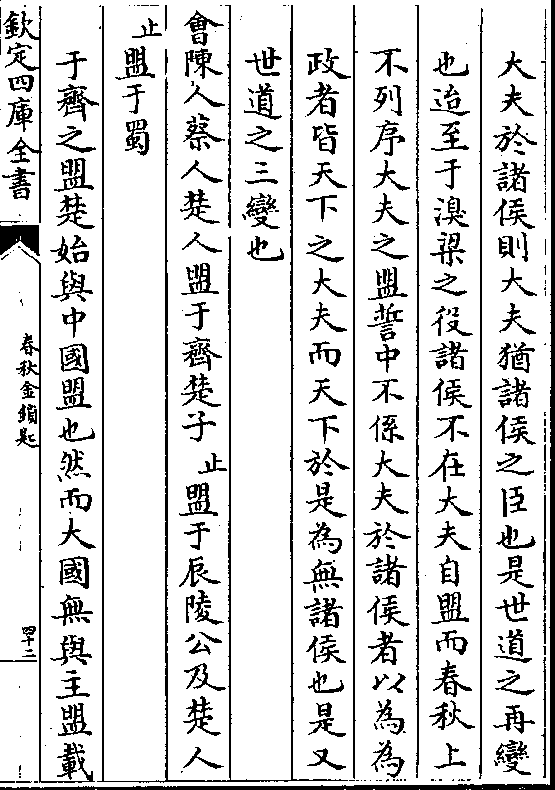 大夫於諸侯則大夫猶諸侯之臣也是世道之再變
也迨至于溴梁之役諸侯不在大夫自盟而春秋上
不列序大夫之盟誓中不係大夫於諸侯者以為為
政者皆天下之大夫而天下於是為無諸侯也是又
世道之三變也
會陳人蔡人楚人盟于齊楚子止盟于辰陵公及楚人
止盟于蜀
于齊之盟楚始與中國盟也然而大國無與主盟載
欽定四庫全書
春秋金鎖匙
四十二